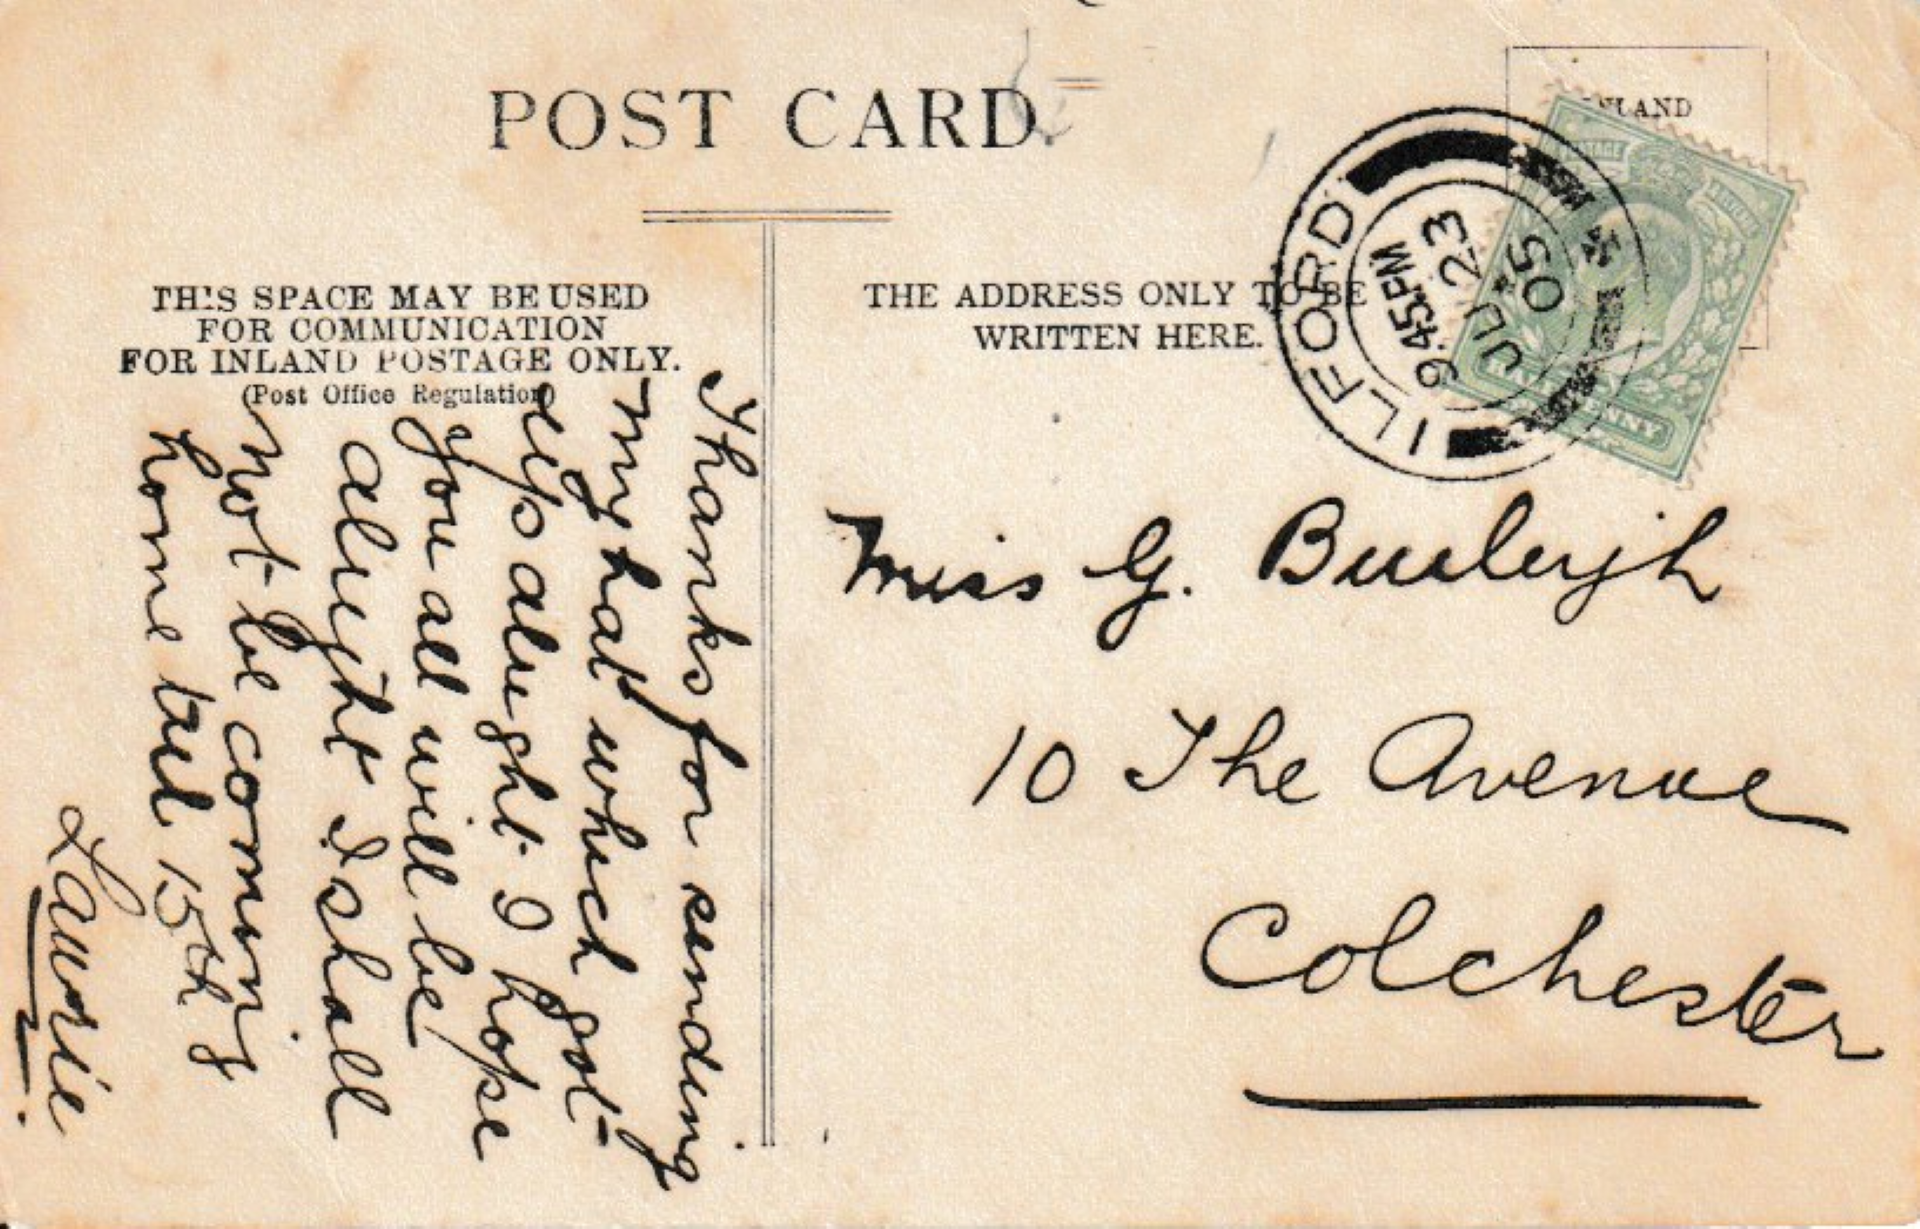 POST CARD.
THIS SPACE MAY BE USED
FOR COMMUNICATION
FOR INLAND POSTAGE ONLY.
(Post Office Regulation)
THE ADDRESS ONLY TO BE
WRITTEN HERE.
INLAND
ILFORD
9.45 PM
JU 23
05
POSTAGE
HALFPENNY
Thanks for sending
my hat which got
alright I hope
you all will be
alright I shall
not be coming
home till 15th
Laurie
Miss G. Burleigh
10 The Avenue
Colchester